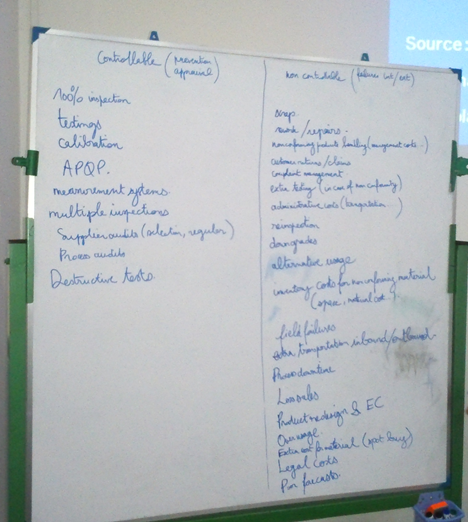 Source:
Controllable (prevention
appraisal)
100% inspection
testings
calibration
APQP.
measurement systems.
multiple inspections
Supplier audits (selection, regular)
Process audits
Destructive tests
non controllable (failures int/ext)
scrap
rework/repairs.
nonconforming products handling (management costs...)
customer returns/claims
complaint management
extra testing (in case of non conformity)
administrative costs (transportation...)
reinspection
downgrades
alternative usage
inventory costs for nonconforming material
(space, cost
field failures
extra transportation inbound/outbound
Process downtime
Loss sales
Product redesign & EC
Overusage
Extra cost for material (spot buy)
Legal costs
Poor forecasts.